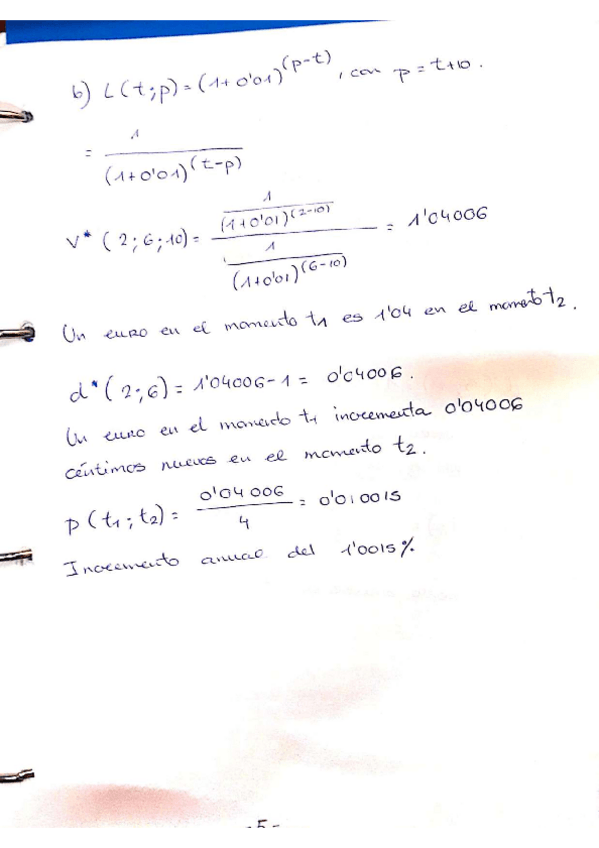 b) L(t;p) = (1+0'01)^(p-t), con p = t+10.
= 1 / (1+0'01)^(t-p)
V* (2;6;10) = (1 / (1+0'01)^(2-10)) / (1 / (1+0'01)^(6-10)) = 1'04006
Un euro en el momento t1 es 1'04 en el momento t2.
d*(2;6) = 1'04006-1 = 0'04006.
Un euro en el momento t1 incrementa 0'04006
céntimos nuevos en el momento t2.
p(t1;t2) = 0'04006 / 4 = 0'010015
Incremento anual del 1'0015%
-5-